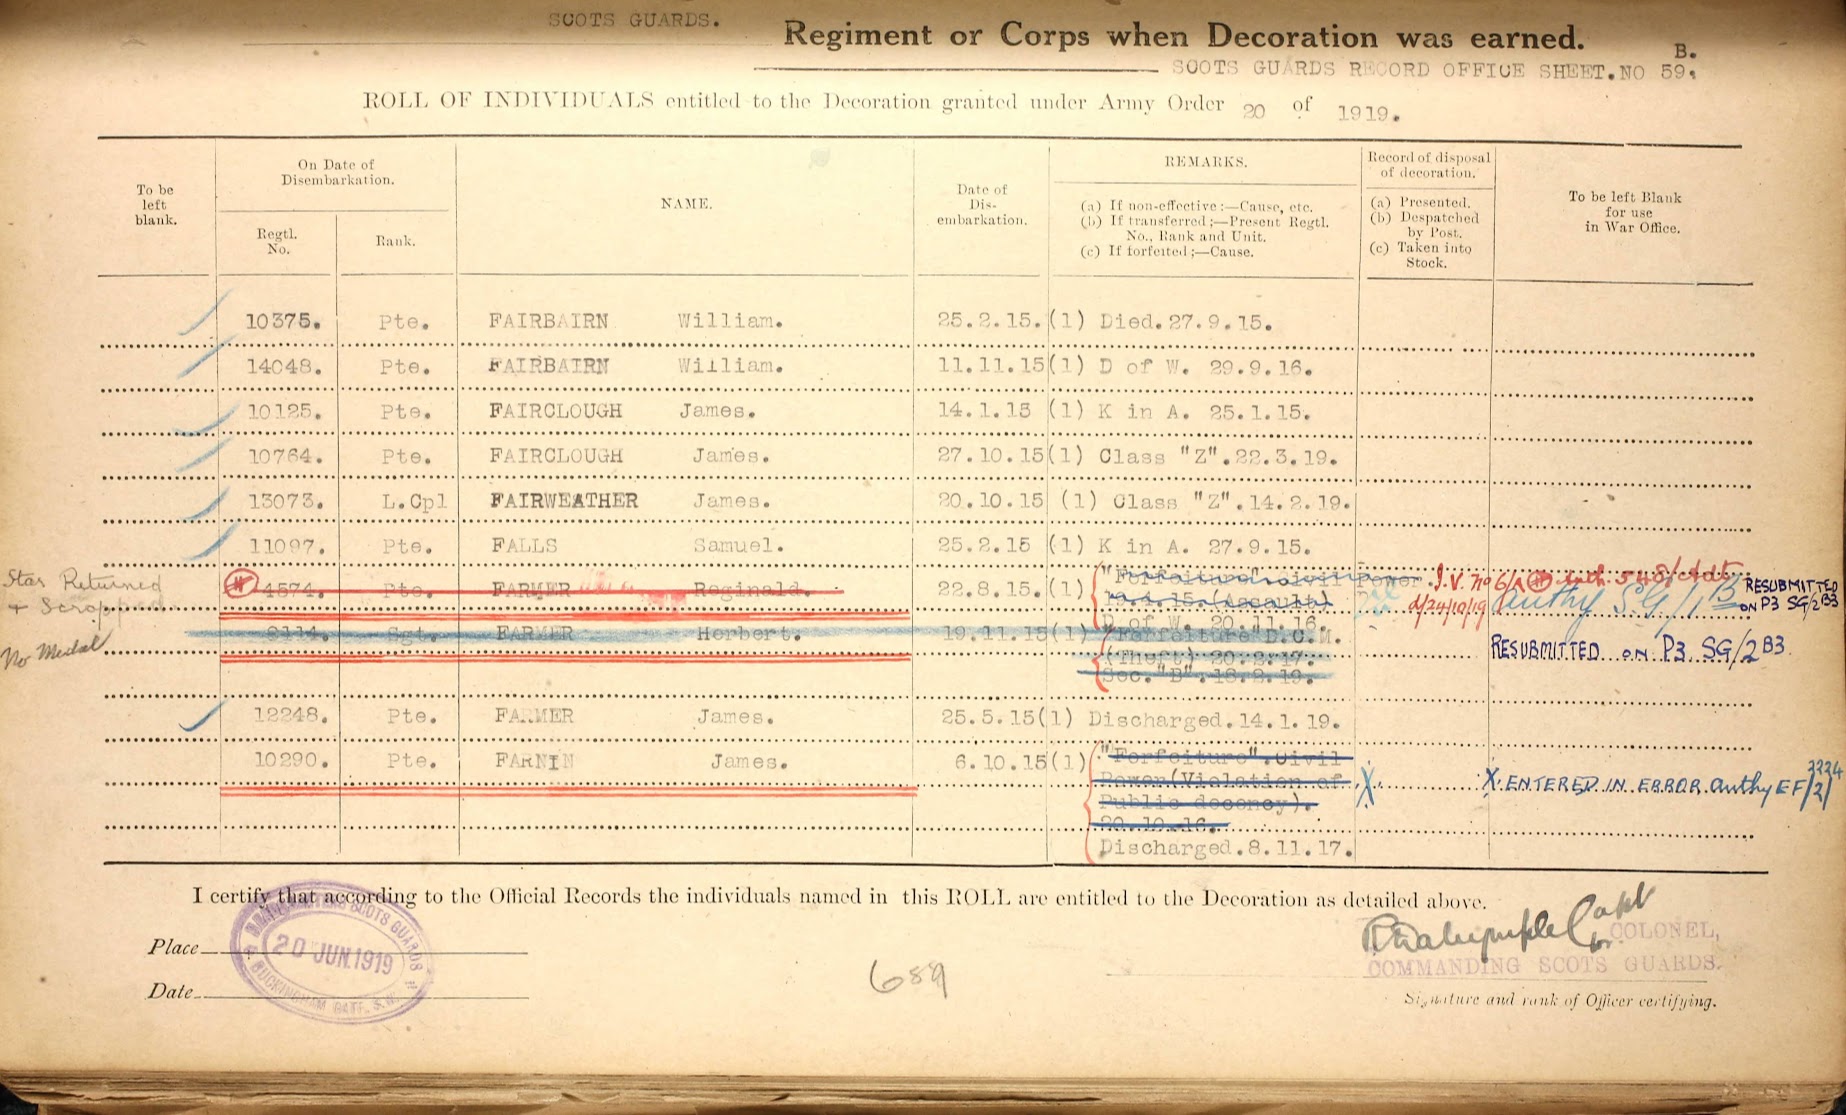 SCOTS GUARDS.
Regiment or Corps when Decoration was earned.
B.
SCOTS GUARDS RECORD OFFICE SHEET.NO 59.
ROLL OF INDIVIDUALS entitled to the Decoration granted under Army Order 20 of 1919.
To be left blank.
On Date of Disembarkation.
Regtl. No.
Rank.
NAME.
Date of Dis-embarkation.
REMARKS.
(a) If non-effective :—Cause, etc.
(b) If transferred ;—Present Regtl. No., Rank and Unit.
(c) If forfeited ;—Cause.
Record of disposal of decoration.
(a) Presented.
(b) Despatched by Post.
(c) Taken into Stock.
To be left Blank for use in War Office.
10375. Pte. FAIRBAIRN William. 25.2.15. (1) Died.27.9.15.
14048. Pte. FAIRBAIRN William. 11.11.15 (1) D of W. 29.9.16.
10125. Pte. FAIRCLOUGH James. 14.1.15 (1) K in A. 25.1.15.
10764. Pte. FAIRCLOUGH James. 27.10.15 (1) Class "Z".22.3.19.
13073. L.Cpl FAIRWEATHER James. 20.10.15 (1) Class "Z".14.2.19.
11097. Pte. FALLS Samuel. 25.2.15 (1) K in A. 27.9.15.
Star Returned + Scrapped
4574. Pte. FARMER Reginald. 22.8.15. (1) "Forfeiture" Civil Power. I.V. No 6/A Auth. 548/Adt RESUBMITTED
19.4.15.(Assault) d/24/10/19 Authy SG/1 B ON P3 SG/2B3
D of W. 20.11.16.
No Medal
8114. Sgt. FARMER Herbert. 19.11.15 (1) "Forfeiture" D.C.M.
(Theft) 20.2.17. RESUBMITTED ON P3 SG/2 B3.
Sec."B".18.2.19.
12248. Pte. FARMER James. 25.5.15 (1) Discharged.14.1.19.
10290. Pte. FARNIN James. 6.10.15 (1) "Forfeiture".Civil
Power(Violation of X X ENTERED IN ERROR Authy EF/2/3334
Public decency).
20.10.16.
Discharged.8.11.17.
I certify that according to the Official Records the individuals named in this ROLL are entitled to the Decoration as detailed above.
Place
Date
SCOTS GUARDS
20 JUN.1919
BUCKINGHAM GATE, S.W.
689
Capt
for COLONEL,
COMMANDING SCOTS GUARDS.
Signature and rank of Officer certifying.